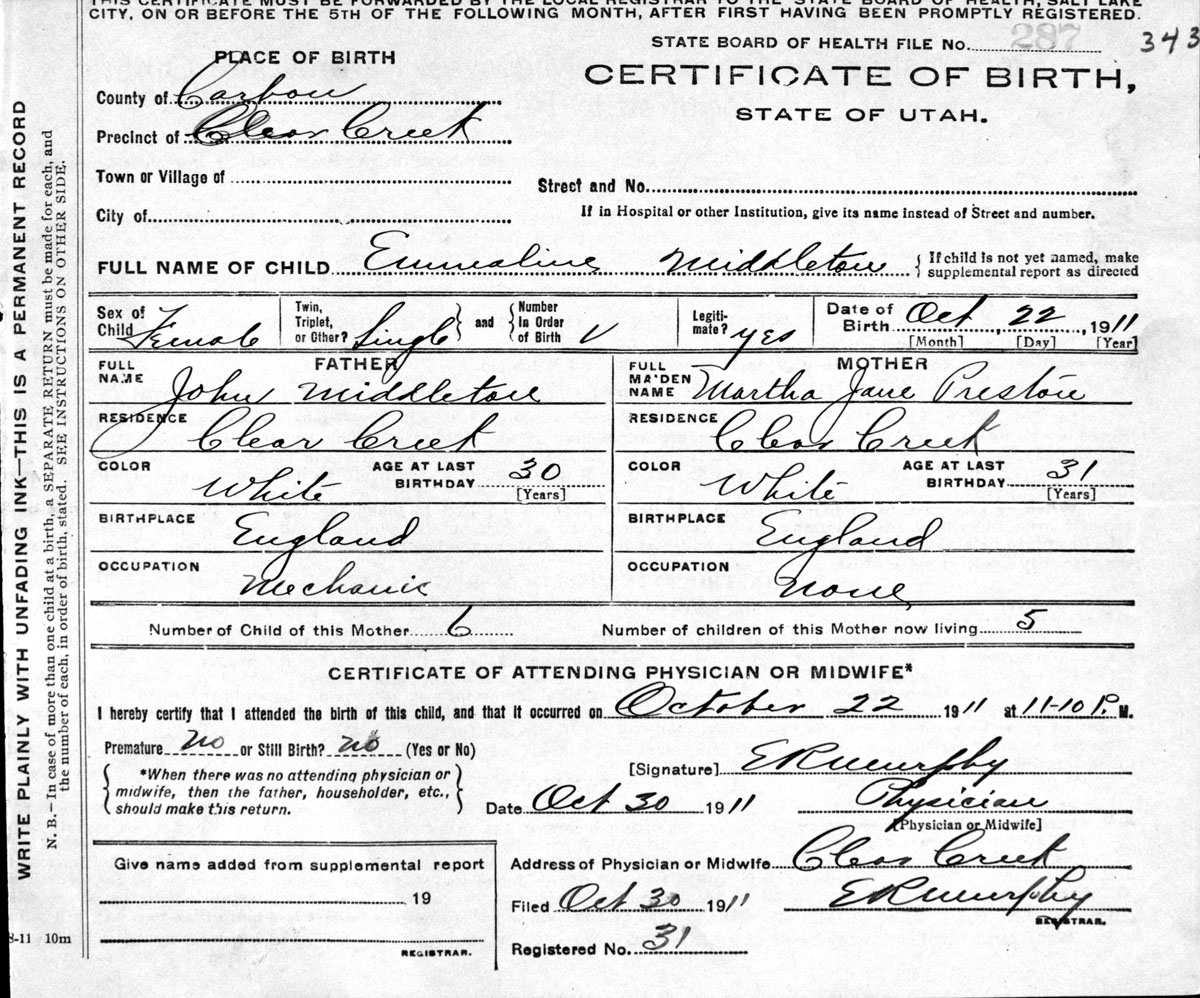 THIS CERTIFICATE MUST BE FORWARDED BY THE LOCAL REGISTRAR TO THE STATE BOARD OF HEALTH, SALT LAKE
CITY, ON OR BEFORE THE 5TH OF THE FOLLOWING MONTH, AFTER FIRST HAVING BEEN PROMPTLY REGISTERED.
STATE BOARD OF HEALTH FILE No. 287 343
PLACE OF BIRTH
CERTIFICATE OF BIRTH,
STATE OF UTAH.
County of Carbon
Precinct of Clear Creek
Town or Village of
Street and No.
City of
If in Hospital or other Institution, give its name instead of Street and number.
FULL NAME OF CHILD Emmaline Middleton { If child is not yet named, make
supplemental report as directed
Sex of Child Female
Twin, Triplet, or Other? Single } and { Number in Order of Birth V
Legiti-mate? yes
Date of Birth Oct, 22, 1911
[Month] [Day] [Year]
FATHER
FULL NAME John Middleton
RESIDENCE Clear Creek
COLOR White AGE AT LAST BIRTHDAY 30
[Years]
BIRTHPLACE England
OCCUPATION Mechanic
MOTHER
FULL MAIDEN NAME Martha Jane Preston
RESIDENCE Clear Creek
COLOR White AGE AT LAST BIRTHDAY 31
[Years]
BIRTHPLACE England
OCCUPATION None
Number of Child of this Mother 6 Number of children of this Mother now living 5
CERTIFICATE OF ATTENDING PHYSICIAN OR MIDWIFE*
I hereby certify that I attended the birth of this child, and that it occurred on October 22 1911 at 11-10 P. M.
Premature no or Still Birth? no (Yes or No)
{ *When there was no attending physician or
midwife, then the father, householder, etc.,
should make this return. }
[Signature] E R Murphy
Date Oct 30 1911 Physician
[Physician or Midwife]
Give name added from supplemental report
19
REGISTRAR.
Address of Physician or Midwife Clear Creek
Filed Oct 30 1911 E R Murphy
REGISTRAR.
Registered No. 31
8-11 10m
WRITE PLAINLY WITH UNFADING INK—THIS IS A PERMANENT RECORD
N. B.—In case of more than one child at a birth, a SEPARATE RETURN must be made for each, and
the number of each, in order of birth, stated. SEE INSTRUCTIONS ON OTHER SIDE.